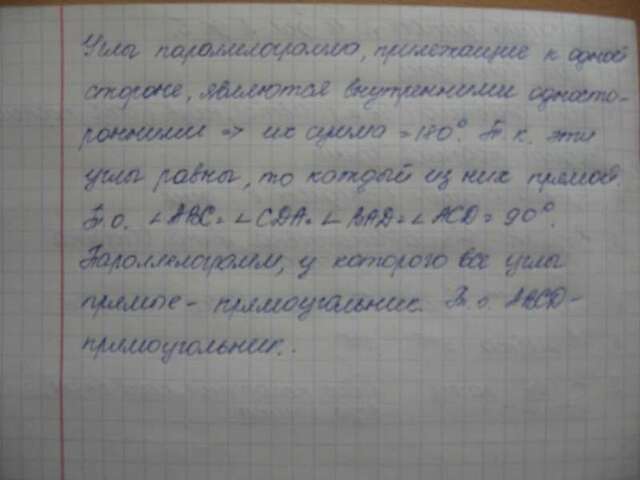 Углы параллелограмма, прилежащие к одной
стороне, являются внутренними односто-
ронними => их сумма = 180°. Т.к. эти
углы равны, то каждый из них прямой.
Т.о. ∠ABC = ∠CDA = ∠BAD = ∠ACD = 90°.
Параллелограмм, у которого все углы
прямые - прямоугольник. Т.о. ABCD -
прямоугольник.